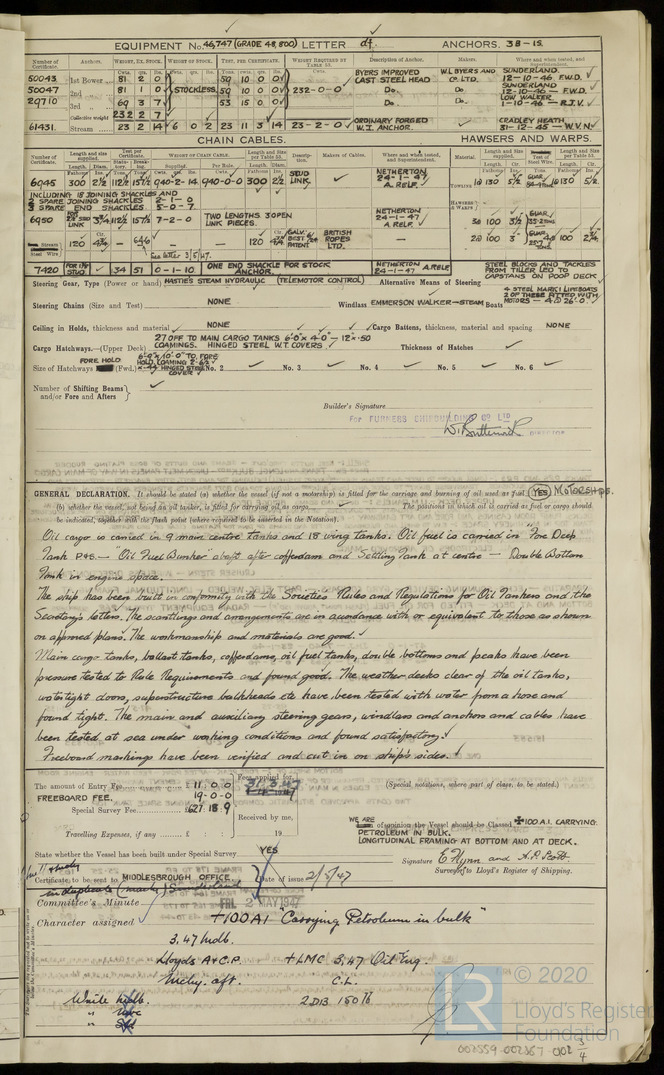 EQUIPMENT No. 46,747 (GRADE 48,800) LETTER d† ANCHORS. 38-15.
Number of Certificate. Anchors. WEIGHT, EX. STOCK. WEIGHT OF STOCK. TEST, PER CERTIFICATE. WEIGHT REQUIRED BY TABLE 53. Description of Anchor. Makers. Where and when tested, and Superintendent.
50043 1st Bower 81 2 0 59 10 0 0 BYERS IMPROVED CAST STEEL HEAD W.L. BYERS AND CO. LTD. SUNDERLAND 12-10-46 F.W.D.
50047 2nd 81 1 0 STOCKLESS 59 10 0 0 232-0-0 Do. Do. SUNDERLAND 12-10-46 F.W.D.
29710 3rd 69 3 7 53 15 0 0 Do. Do. LOW WALKER 1-10-46 R.J.V.
Collective weight 232 2 7
61431 Stream 23 2 14 6 0 2 23 11 3 14 23-2-0 ORDINARY FORGED W.I. ANCHOR. CRADLEY HEATH 31-12-45 W.V.N.
CHAIN CABLES. HAWSERS AND WARPS.
Number of Certificate. Length and size supplied. Test per Certificate. WEIGHT OF CHAIN CABLE. Length and Size per Table 53. Description. Makers of Cables. Where and when tested, and Superintendent. Material. Length and size supplied. Test of Steel Wire. Length and Size per Table 53.
6945 300 2½ 112½ 157½ 940-2-14 940-0-0 300 2½ STUD LINK NETHERTON 24-1-47 A. RELF. TOWLINE 130 5½ 130 5½
INCLUDING 18 JOINING SHACKLES AND
2 SPARE JOINING SHACKLES 2-1-0
3 SPARE END SHACKLES 5-0-7
6950 112½ 157½ 7-2-0 TWO LENGTHS 3 OPEN LINK PIECES. NETHERTON 24-1-47 A. RELF. HAWSERS & WARPS 100 3½
Stream Steel Wire 120 4¾ 120 4¾ BRITISH ROPES LTD. 100 3 100 2¾
See letter 3/5/47.
7420 34 51 0-1-10 ONE END SHACKLE FOR STOCK ANCHOR. NETHERTON 24-1-47 A. RELF STEEL BLOCKS AND TACKLES FROM TILLER LED TO CAPSTANS ON POOP DECK
Steering Gear, Type (Power or hand) HASTIE'S STEAM HYDRAULIC (TELEMOTOR CONTROL) Alternative Means of Steering
Steering Chains (Size and Test) NONE Windlass EMMERSON WALKER—STEAM Boats 4 STEEL MARK I LIFEBOATS 2 OF THESE FITTED WITH MOTORS — 4 @ 26'-0"
Ceiling in Holds, thickness and material NONE Cargo Battens, thickness, material and spacing NONE
Cargo Hatchways.—(Upper Deck) 27 OFF TO MAIN CARGO TANKS 6'-0" x 4'-0" — 12" x .50 COAMINGS. HINGED STEEL W.T. COVERS Thickness of Hatches
Size of Hatchways FORE HOLD (Fwd.) 6'-0" x 10'-0" TO FORE HOLD, COAMING 2'-6½" x .44 HINGED STEEL COVER No. 2 No. 3 No. 4 No. 5 No. 6
Number of Shifting Beams and/or Fore and Afters
Builder's Signature
For FURNESS SHIPBUILDING CO LTD
DIRECTOR
GENERAL DECLARATION. It should be stated (a) whether the vessel (if not a motorship) is fitted for the carriage and burning of oil used as fuel (YES) MOTORSHIPS.
(b) whether the vessel, not being an oil tanker, is fitted for carrying oil as cargo. The positions in which oil is carried as fuel or cargo should
be indicated, together with the flash point (where required to be inserted in the Notation).
Oil cargo is carried in 9 main centre tanks and 18 wing tanks. Oil fuel is carried in "Fore Deep
Tank P&S. — "Oil Fuel Bunker" abaft after cofferdam and Settling Tank at centre — Double Bottom
Tank in engine space.
The ship has been built in conformity with the Societies Rules and Regulations for Oil Tankers and the
Secretary's letters. The scantlings and arrangements are in accordance with or equivalent to those as shown
on approved plans. The workmanship and materials are good.
Main cargo tanks, ballast tanks, cofferdams, oil fuel tanks, double bottoms and peaks have been
pressure tested to Rule Requirements and found good. The weather decks clear of the oil tanks,
watertight doors, superstructure bulkheads etc have been tested with water from a hose and
found tight. The main and auxiliary steering gears, windlass and anchors and cables have
been tested at sea under working conditions and found satisfactory.
Freeboard markings have been verified and cut in on ship's sides.
The amount of Entry Fee £ 11 0 0 Fees applied for,
FREEBOARD FEE. 19-0-0 (Special notations, where part of class, to be stated.)
Special Survey Fee £627 18 9 Received by me,
Travelling Expenses, if any £ : : 19
WE ARE of opinion the Vessel should be Classed ✠100 A.1. CARRYING
PETROLEUM IN BULK.
LONGITUDINAL FRAMING AT BOTTOM AND AT DECK.
State whether the Vessel has been built under Special Survey YES
Signature E. Flynn and A.P. Scott.
Surveyors to Lloyd's Register of Shipping.
Certificate to be sent to MIDDLESBROUGH OFFICE Date of issue 2/5/47
in duplicate Sunderland
Committee's Minute FRI. 2 MAY 1947
Character assigned +100A1 "Carrying Petroleum in bulk"
3,47 Mdb.
Lloyds A & C.P. +LMC 3,47 Oil Eng.
Mchy. aft. C.L.
2DB 150 lb
Write Mdb.
© 2020
LR Lloyd's Register Foundation
002559-002567-0102 3/4